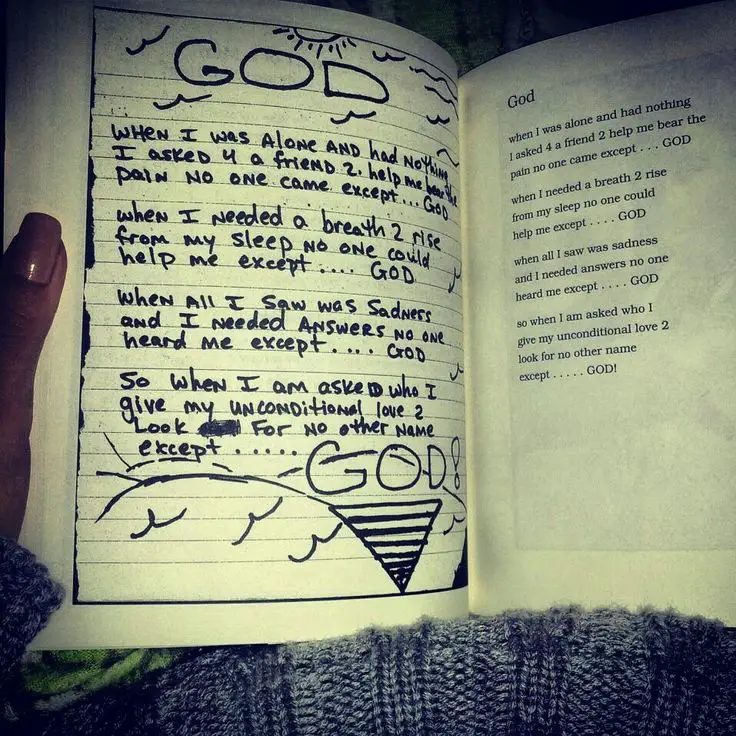 GOD
WHEN I WAS AlONE AND had NOthing
I asked 4 a friEND 2. help me bear the
pain NO ONE came Except... GOD
when I Needed a breath 2 rise
from my sleep NO ONE could
help me except .... GOD
when All I Saw was SadNess
and I Needed ANSWERS NO ONE
heard me except .... GOD
So when I am askeD who I
give my UNCONDitional love 2
Look FOR NO other NAME
except .....
GOD!
God
when I was alone and had nothing
I asked 4 a friend 2 help me bear the
pain no one came except . . . GOD
when I needed a breath 2 rise
from my sleep no one could
help me except . . . . GOD
when all I saw was sadness
and I needed answers no one
heard me except . . . . GOD
so when I am asked who I
give my unconditional love 2
look for no other name
except . . . . . GOD!